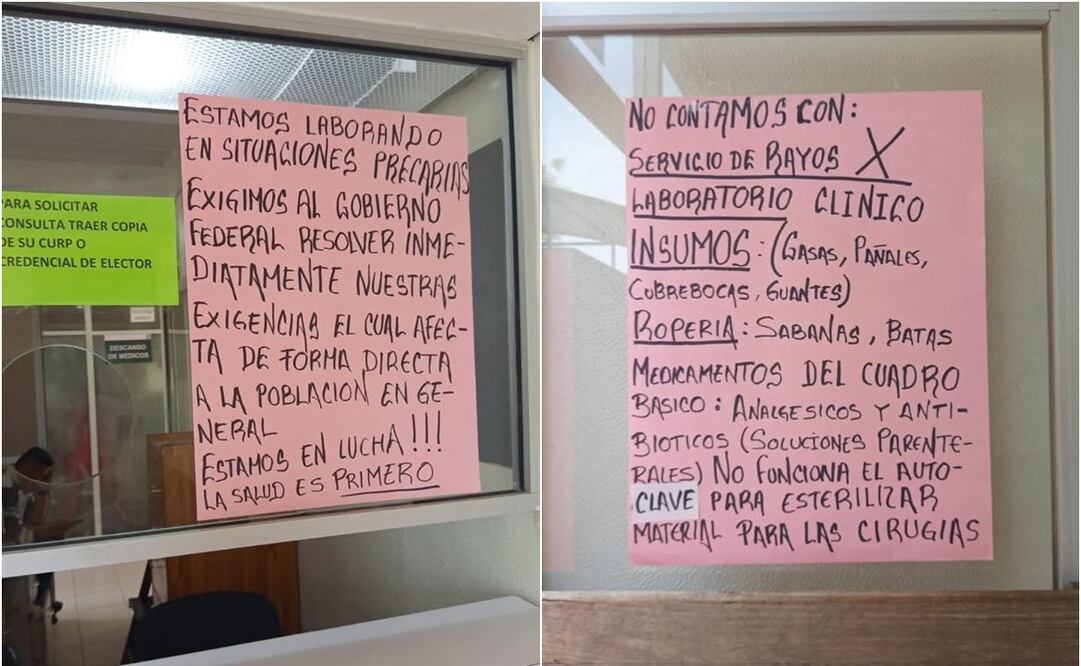 ESTAMOS LABORANDO
EN SITUACIONES PRECARIAS
EXIGIMOS AL GOBIERNO
FEDERAL RESOLVER INME-
DIATAMENTE NUESTRAS
EXIGENCIAS EL CUAL AFEC-
TA DE FORMA DIRECTA
A LA POBLACION EN GE-
NERAL
ESTAMOS EN LUCHA!!!
LA SALUD ES PRIMERO
PARA SOLICITAR
CONSULTA TRAER COPIA
DE SU CURP O
CREDENCIAL DE ELECTOR
DESCANSO
DE MEDICOS
NO CONTAMOS CON:
SERVICIO DE RAYOS X
LABORATORIO CLINICO
INSUMOS: (GASAS, PAÑALES,
CUBREBOCAS, GUANTES)
ROPERIA: SABANAS, BATAS
MEDICAMENTOS DEL CUADRO
BASICO: ANALGESICOS Y ANTI-
BIOTICOS (SOLUCIONES PARENTE-
RALES) NO FUNCIONA EL AUTO-
CLAVE PARA ESTERILIZAR
MATERIAL PARA LAS CIRUGIAS